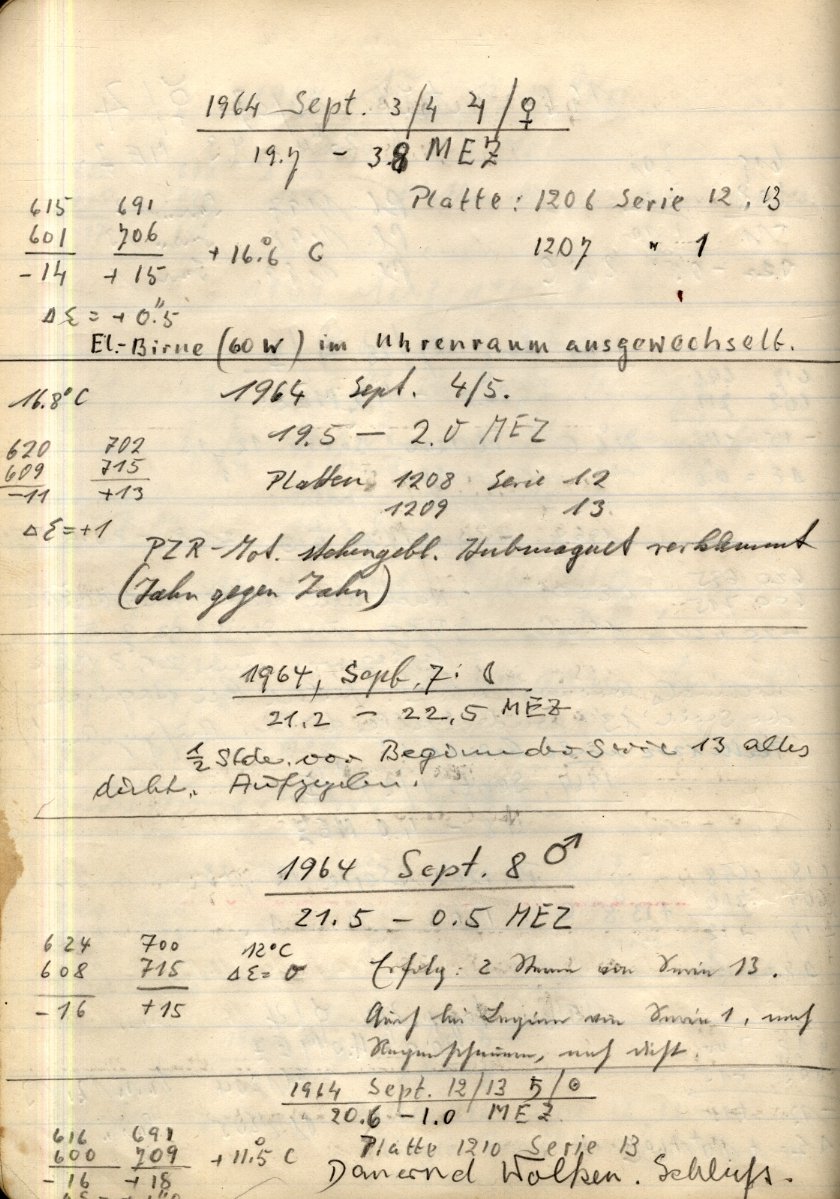 1964 Sept. 3/4 ♃/♀
19.7 – 3.8 MEZ
Platte: 1206 Serie 12, 13
615 691
601 706 +16.°6 C 1207 " 1
-14 +15
Δε = +0."5
El.-Birne (60 W) im Uhrenraum ausgewechselt.
16.8°C 1964 Sept. 4/5.
19.5 – 2.0 MEZ
620 702
609 715 Platten 1208 Serie 12
-11 +13 1209 13
Δε=+1
PZR-Mot. stehengebl. Hubmagnet verklemmt
(Zahn gegen Zahn)
1964, Sept. 7.
21.2 – 22,5 MEZ
1/2 Stde. vor Beginn der Serie 13 alles
dicht. Aufgegeben.
1964 Sept. 8 ♂
21.5 – 0.5 MEZ
624 700 12°C
608 715 Δε= 0 Erfolg: 2 Sterne von Serie 13.
-16 +15 Auch bei Beginn von Serie 1, nach
Regenschauern, noch dicht.
1964 Sept. 12/13 ♄/☉
20.6 – 1.0 MEZ
616 691 Platte 1210 Serie 13
600 709 +11.°5 C Dauernd Wolken. Schluß.
-16 +18